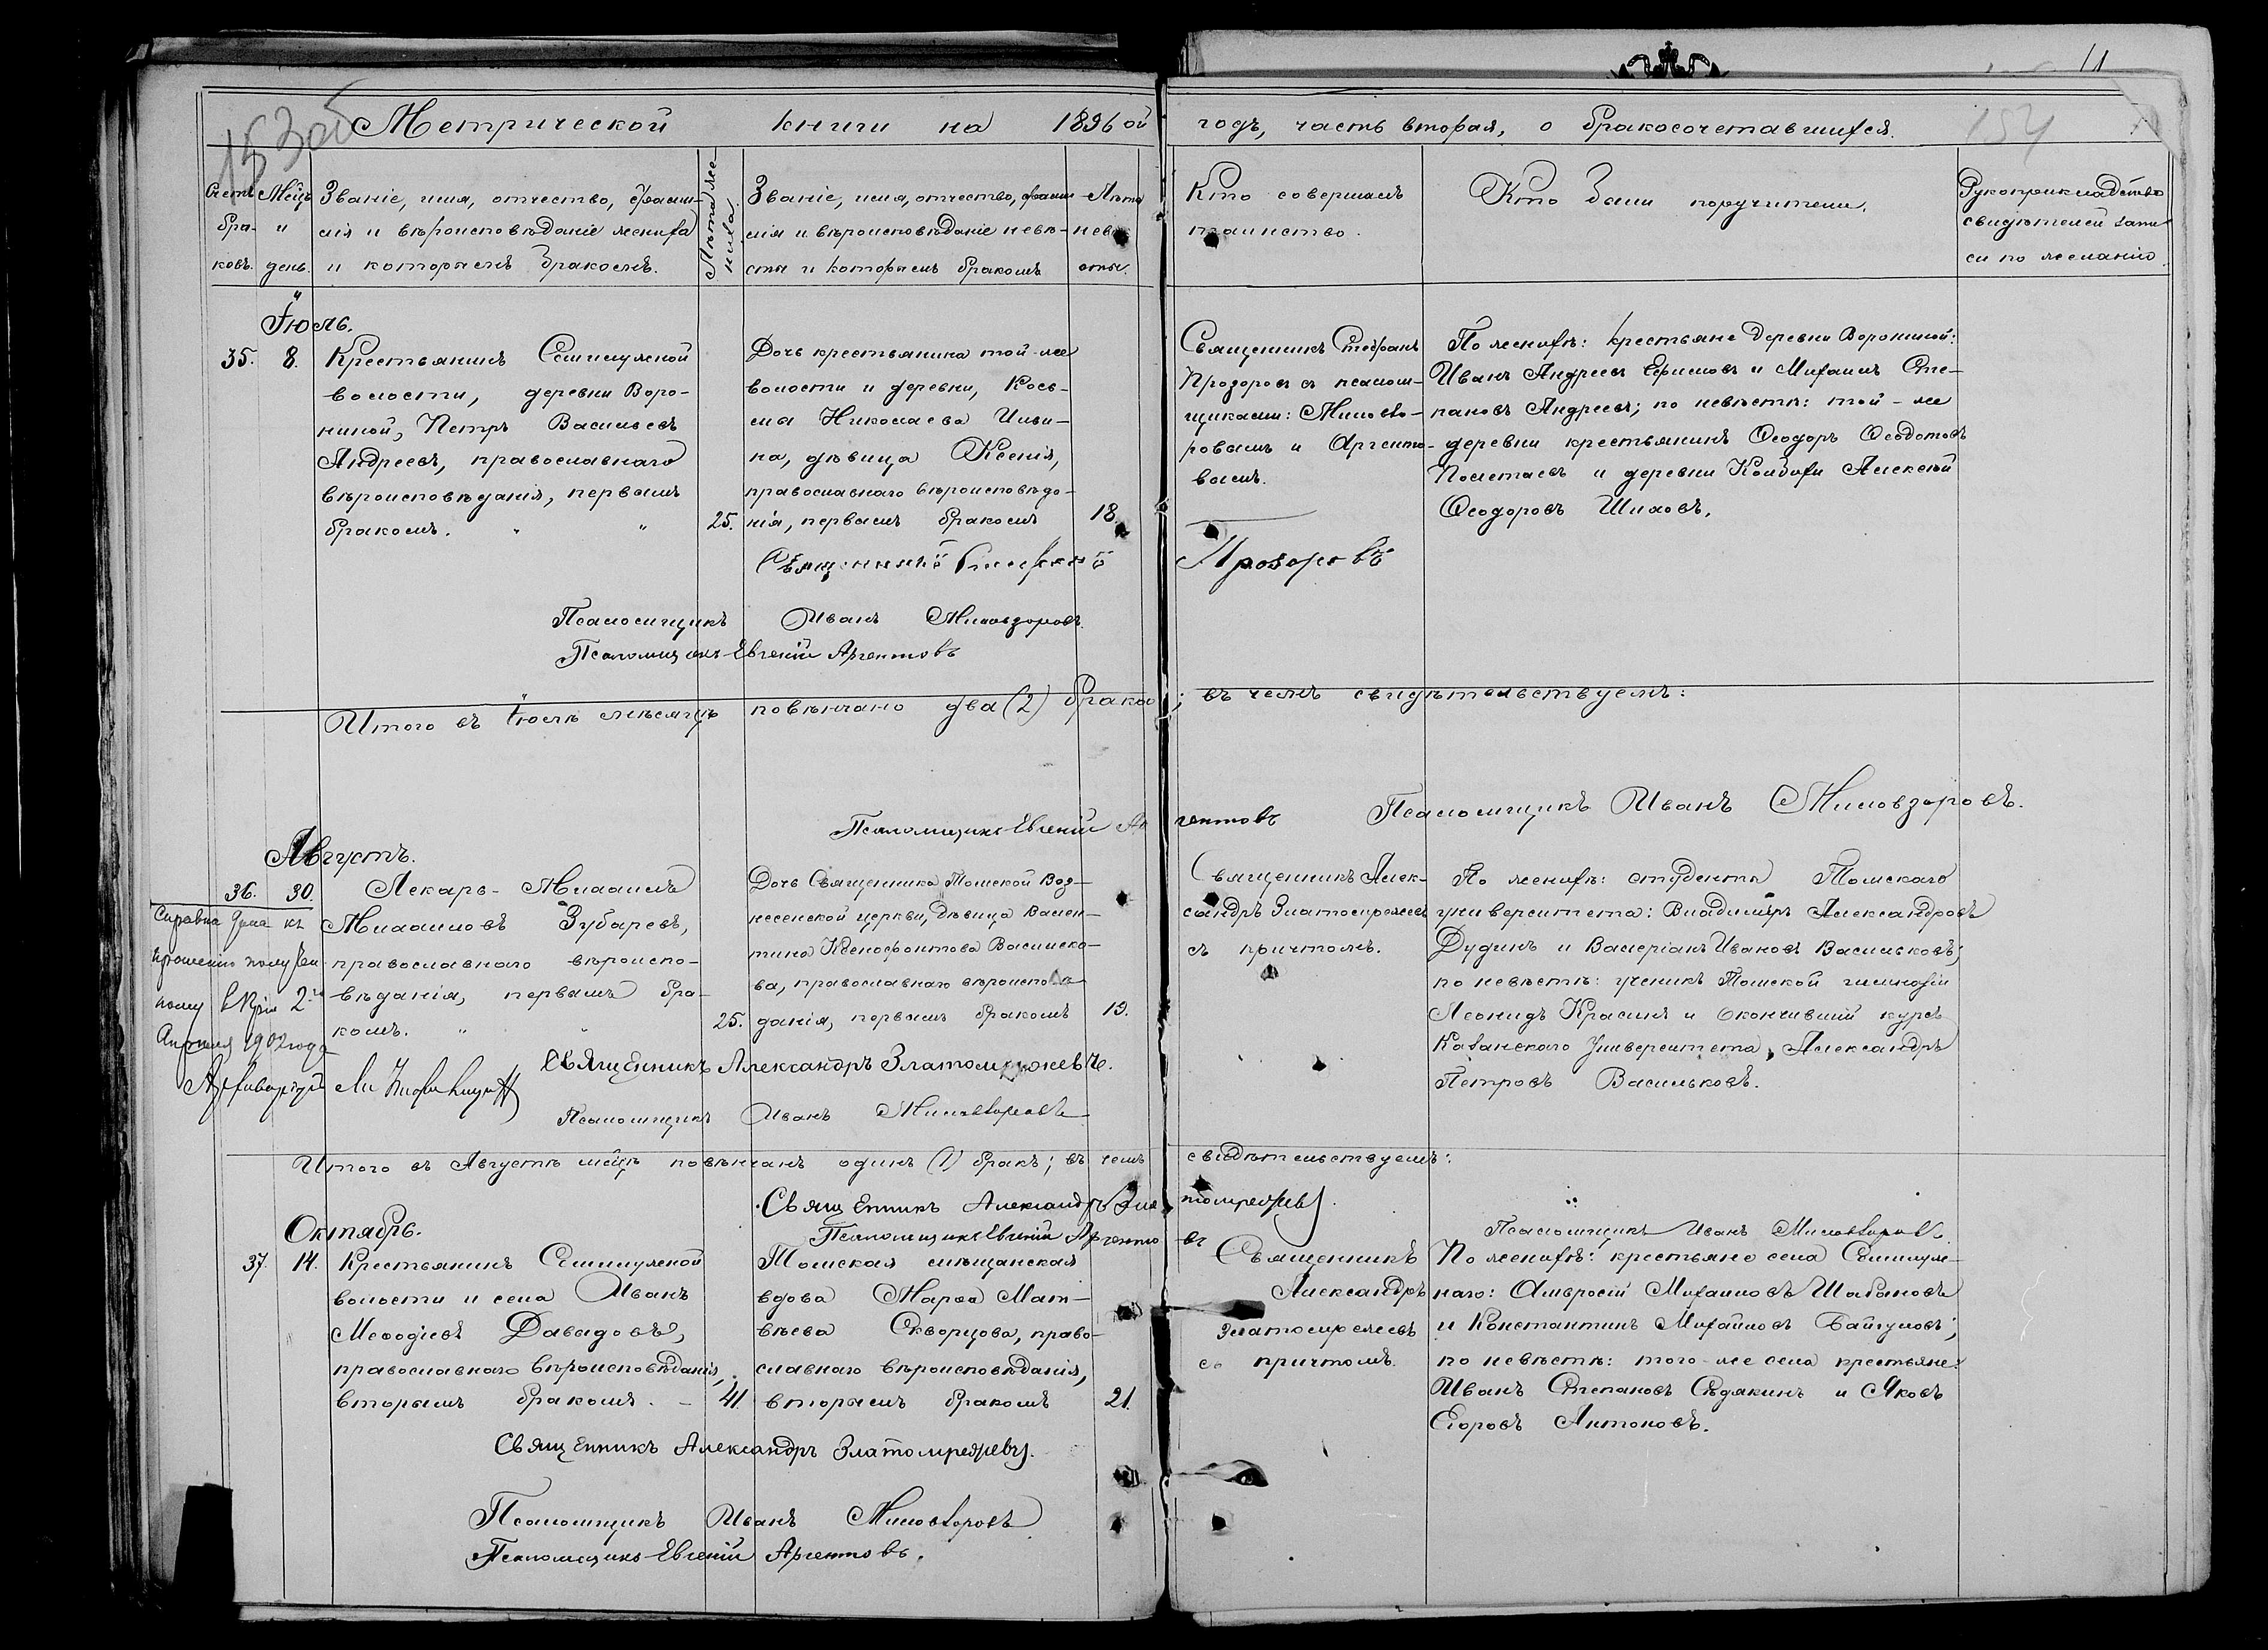 11
153об
154
Метрической книги на 1896ой годъ, часть вторая, о бракосочетавшихся.
Счетъ бра- ковъ.
Мѣцъ и день.
Званіе, имя, отчество, фами-
лія и вѣроисповѣданіе жениха
и которымъ бракомъ.
Лѣта же-
ниха.
Званіе, имя, отчество, фами-
лія и вѣроисповѣданіе невѣ-
сты и которымъ бракомъ
Лѣта
невѣ-
сты.
Кто совершалъ
таинство.
Кто были поручители.
Рукоприкладство
свидѣтелей запи-
си по желанію.
Іюль.
35. 8.
Крестьянинъ Семилужной
волости, деревни Воро-
ниной, Петръ Васильевъ
Андреевъ, православнаго
вѣроисповѣданія, первымъ
бракомъ. " "
25.
Дочь крестьянина той-же
волости и деревни, Кось-
мы Николаева Иви-
на, дѣвица Ксенія,
православнаго вѣроисповѣда-
нія, первымъ бракомъ
18.
Священникъ Стефанъ
Прозоровъ съ псалом-
щиками: Миловзо-
ровымъ и Аргенто-
вымъ.
По женихѣ: крестьяне деревни Ворониной:
Иванъ Андреевъ Ефимовъ и Михаилъ Сте-
пановъ Андреевъ; по невѣстѣ: той-же
деревни крестьянинъ Ѳеодоръ Ѳеодотовъ
Полетаевъ и деревни Алексѣй
Ѳеодоровъ Шиховъ.
Священникъ Стефанъ Прозоровъ
Псаломщикъ Иванъ Миловзоровъ.
Псаломщикъ Евгеній Аргентовъ
Итого въ Іюлѣ мѣсяцѣ повѣнчано два (2) брака; въ чемъ свидѣтельствуемъ:
Псаломщикъ Иванъ Миловзоровъ.
Псаломщикъ Евгеній Аргентовъ
Августъ.
36. 30.
Лекарь Михаилъ
Михаиловъ Зубаревъ,
православнаго вѣроиспо-
вѣданія, первымъ бра-
комъ. " "
25.
Дочь Священника Томской Воз-
несенской церкви, дѣвица Вален-
тина Ксенофонтова Василько-
ва, православнаго вѣроисповѣ-
данія, первымъ бракомъ
19.
Священникъ Алек-
сандръ Златомрежевъ
съ причтомъ.
По женихѣ: студенты Томскаго
университета: Владиміръ Александровъ
Дудинъ и Валеріанъ Ивановъ Васильковъ;
по невѣстѣ: ученикъ Томской гимназіи
Леонидъ Красинъ и окончившій курсъ
Казанскаго Университета, Александръ
Петровъ Васильковъ.
Справка дана къ
прошенію получен-
ному 2го
Апрѣля 1902 года
Архиваріусъ
Священникъ Александръ Златомрежевъ.
Псаломщикъ Иванъ Миловзоровъ
Итого въ Августѣ мѣцѣ повѣнчанъ одинъ (1) бракъ; въ чемъ свидѣтельствуемъ:
Священникъ Александръ Златомрежевъ.
Псаломщикъ Иванъ Миловзоровъ.
Псаломщикъ Евгеній Аргентовъ
Октябрь.
37. 14.
Крестьянинъ Семилужной
волости и села Иванъ
Меѳодіевъ Давыдовъ,
православнаго вѣроисповѣданія,
вторымъ бракомъ. –
41.
Томская мѣщанская
вдова Марѳа Мат-
вѣева Скворцова, право-
славнаго вѣроисповѣданія,
вторымъ бракомъ
21.
Священникъ
Александръ
Златомрежевъ
съ причтомъ.
По женихѣ: крестьяне села Семилуж-
наго: Амвросій Михаиловъ Шабановъ
и Константинъ Михайловъ Байгуловъ;
по невѣстѣ: того-же села крестьяне:
Иванъ Степановъ Сѣдякинъ и Яковъ
Егоровъ Антоновъ.
Священникъ Александръ Златомрежевъ.
Псаломщикъ Иванъ Миловзоровъ
Псаломщикъ Евгеній Аргентовъ.